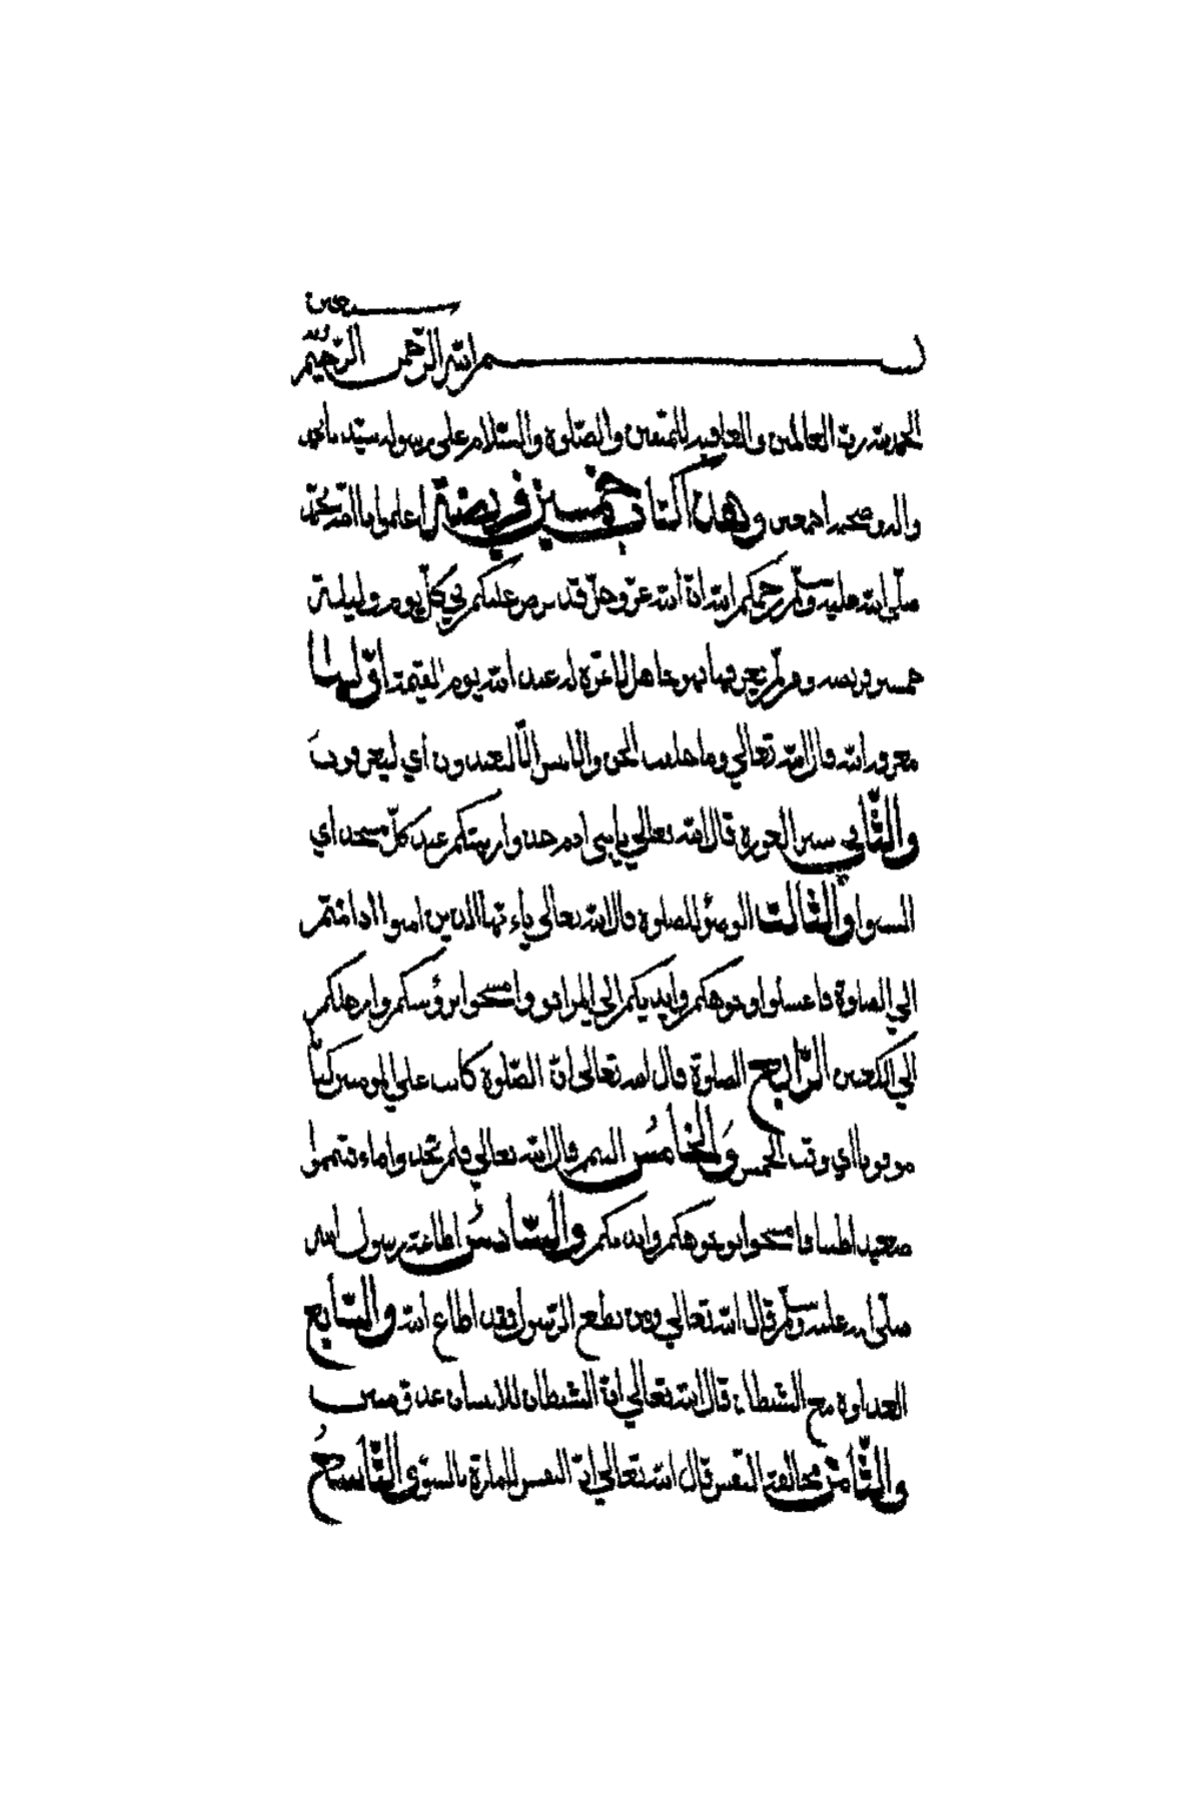 نستعين
بسم الله الرحمن الرحيم وبه
الحمد لله رب العالمين والعاقبة للمتقين والصلوة والسلام على رسوله سيدنا محمد
واله وصحبه اجمعين وهذا كتاب خمسين فريضة اعلموا يا امة محمد
صلي الله عليه وسلم رحمكم الله ان الله عز وجل قد فرض عليكم في كل يوم وليلة
خمسين فريضة ومن لم يعرفها فهو جاهل لا عذر له عند الله يوم القيمة اولها
معرفة الله قال الله تعالي وما خلقت الجن والانس الا ليعبدون أي ليعرفون
والثاني ستر العورة قال الله تعالي يا بني ادم خذوا زينتكم عند كل مسجد اي
البسوا والثالث الوضؤ للصلوة قال الله تعالى ياءيها الذين امنوا اذا قمتم
الي الصلوة فاغسلوا وجوهكم وايديكم الي المرافق وامسحوا برؤسكم وارجلكم
الي الكعبين الرابع الصلوة قال الله تعالى ان الصلوة كانت علي المومنين كتابا
موقوتا اي وقت الخمس والخامس التيمم قال الله تعالي فلم تجدوا ماء فتيمموا
صعيدا طيبا فامسحوا بوجوهكم وايديكم والسادس اطاعة رسول الله
صلى الله عليه وسلم قال الله تعالي ومن يطع الرسول فقد اطاع الله والسابع
العداوة مع الشيطان قال الله تعالي ان الشيطان للانسان عدو مبين
والثامن مخالفة النفس قال الله تعالي ان النفس لامارة بالسؤ والتاسع